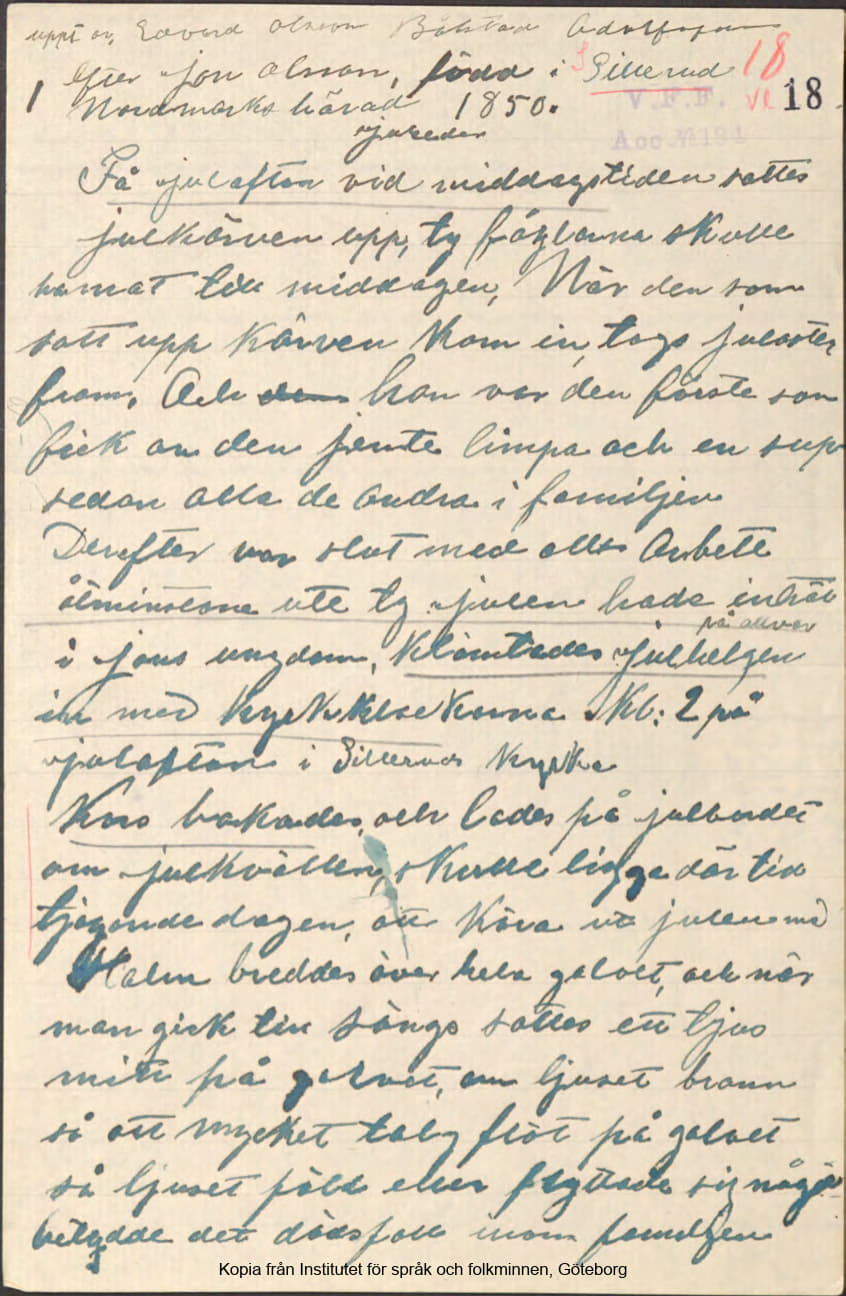 uppt av, Edvard Olsson Bålstad Adolfsfors
efter Jon Olsson, född i Sillerud 18
1 Nordmarks härad 1850. V.F.F. VI 18
julseder Acc. № 184
På julafton vid middagstiden sattes
julkärven upp, ty fåglarna skulle
ha mat till middagen, När den som
satt upp kärven kom in, togs julosten
fram, Och den han var den förste som
fick av den jemte limpa och en sup
sedan alla de andra i familjen
Derefter var slut med allt arbete
åtminstone ute ty julen hade inträtt
på allvar
i Jons ungdom, klämtades julhelgen
in med kyrkklockorna Kl: 2 på
julafton i Sillerud kyrka
Kors bakades, och lades på julbordet
om julkvällen, skulle ligga där till
tjogonde dagen, att köra ut julen med
Halm breddes över hela golvet, och när
man gick till sängs sattes ett ljus
mitt på golvet, om ljuset brann
så att mycket talg flöt på golvet
så ljuset föll eller flyttade sig något
betydde det dödsfall inom familjen
Kopia från Institutet för språk och folkminnen, Göteborg